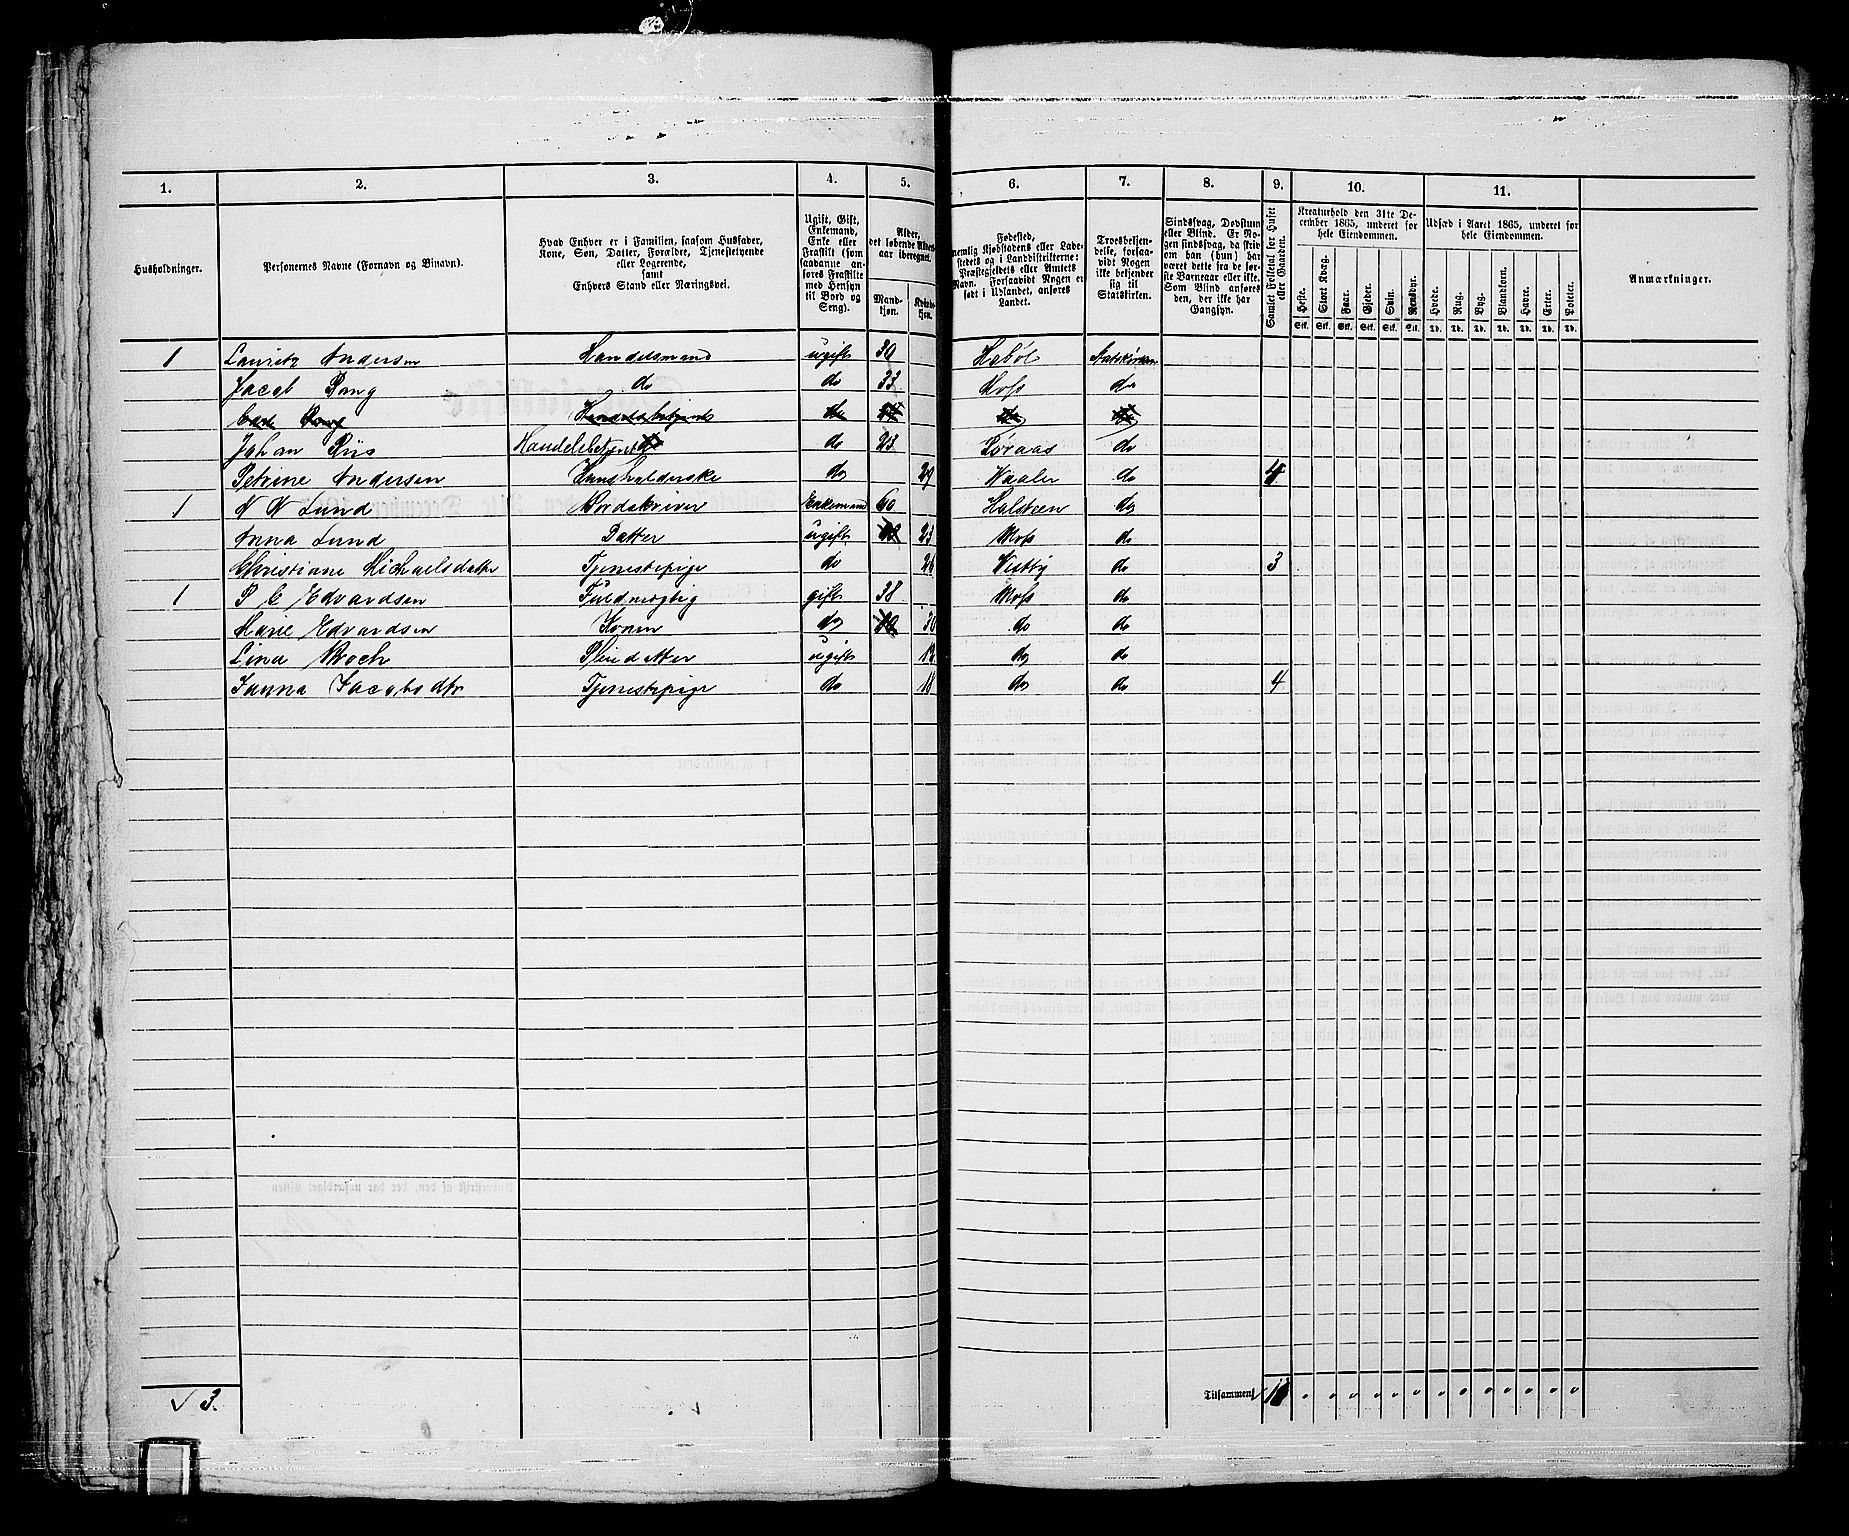 1. 2. 3. 4. 5. 6. 7. 8. 9. 10. 11.
Husholdninger.
Personernes Navne (Fornavn og Binavn).
Hvad Enhver er i Familien, saasom Husfader,
Kone, Søn, Datter, Forældre, Tjenestetyende
eller Logerende,
samt
Enhvers Stand eller Næringsvei.
Ugift, Gift,
Enkemand,
Enke eller
Fraskilt (som
saadanne an-
føres Fraskilte
med Hensyn
til Bord og
Seng).
Alder,
det løbende Alders-
aar iberegnet.
Mand-
kjøn.
Kvinde-
kjøn.
Fødested,
nemlig Kjøbstadens eller Lade-
stedets og i Landdistrikterne:
Præstegjeldets eller Amtets
Navn. Forsaavidt Nogen er
født i Udlandet, anføres
Landet.
Troesbekjen-
delse, forsaa-
vidt Nogen
ikke bekjender
sig til
Statskirken.
Sindssvag, Døvstum
eller Blind. Er No-
gen sindssvag, da skriv
om han (hun) har
været dette fra de før-
ste Barneaar eller ikke.
Som Blind anføres
den, der ikke har
Gangsyn.
Samlet Folketal for Huset
eller Gaarden.
Kreaturhold den 31te De-
cember 1865, underet for
hele Eiendommen.
Heste. Stort Kvæg. Faar. Gjeder. Svin. Rensdyr.
Stk. Stk. Stk. Stk. Stk. Stk.
Udsæd i Aaret 1865, underet for
hele Eiendommen.
Hvede. Rug. Byg. Blandkorn. Havre. Erter. Poteter.
Td. Td. Td. Td. Td. Td. Td.
Anmærkninger.
1 Lauritz Andersen Handelsmand ugift 39 Habøl Statskirken
Jacob do do 33 Moss do
Johan Riis Handelsbetjent do 28 do
Petrine Andersen Huusholderske do 29 Vaaler do 4
1 N N Lund Enkemand 60 do
Anna Lund Datter ugift 23 Moss do
Christiane Michaelsdatter Tjenestepige do 26 Vestby do 3
1 P E Edvardsen Fuldmægtig gift 38 Moss do
Marie Edvardsen Konen do 30 do do
Lina Broch Pleiedatter ugift do do
Janna Jacobsdtr Tjenestepige do 18 do do 4
√ 3.
Tilsammen 11 0 0 0 0 0 0 0 0 0 0 0 0 0